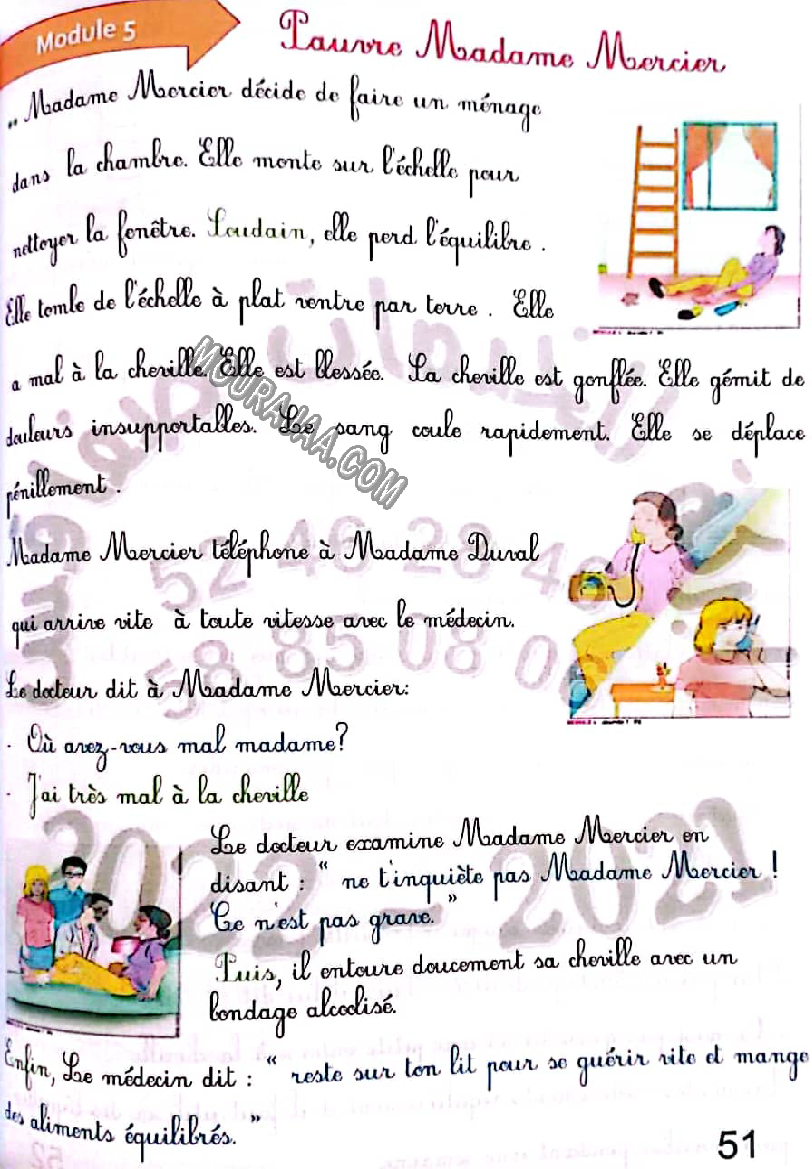 Module 5
Pauvre Madame Mercier
„ Madame Mercier décide de faire un ménage
dans la chambre. Elle monte sur l'échelle pour
nettoyer la fenêtre. Soudain, elle perd l'équilibre .
Elle tombe de l'échelle à plat ventre par terre . Elle
a mal à la cheville. Elle est blessée. Sa cheville est gonflée. Elle gémit de
douleurs insupportables. Le sang coule rapidement. Elle se déplace
péniblement .
Madame Mercier téléphone à Madame Duval
qui arrive vite à toute vitesse avec le médecin.
Le docteur dit à Madame Mercier:
- Où avez-vous mal madame?
- J'ai très mal à la cheville
Le docteur examine Madame Mercier en
disant : " ne t'inquiète pas Madame Mercier !
Ce n'est pas grave. "
Puis, il entoure doucement sa cheville avec un
bondage alcoolisé.
Enfin, Le médecin dit : " reste sur ton lit pour se guérir vite et mange
des aliments équilibrés. "
51
MOURAJAA.COM
52 46 23 46
58 85 08 06
2022 - 2021
52